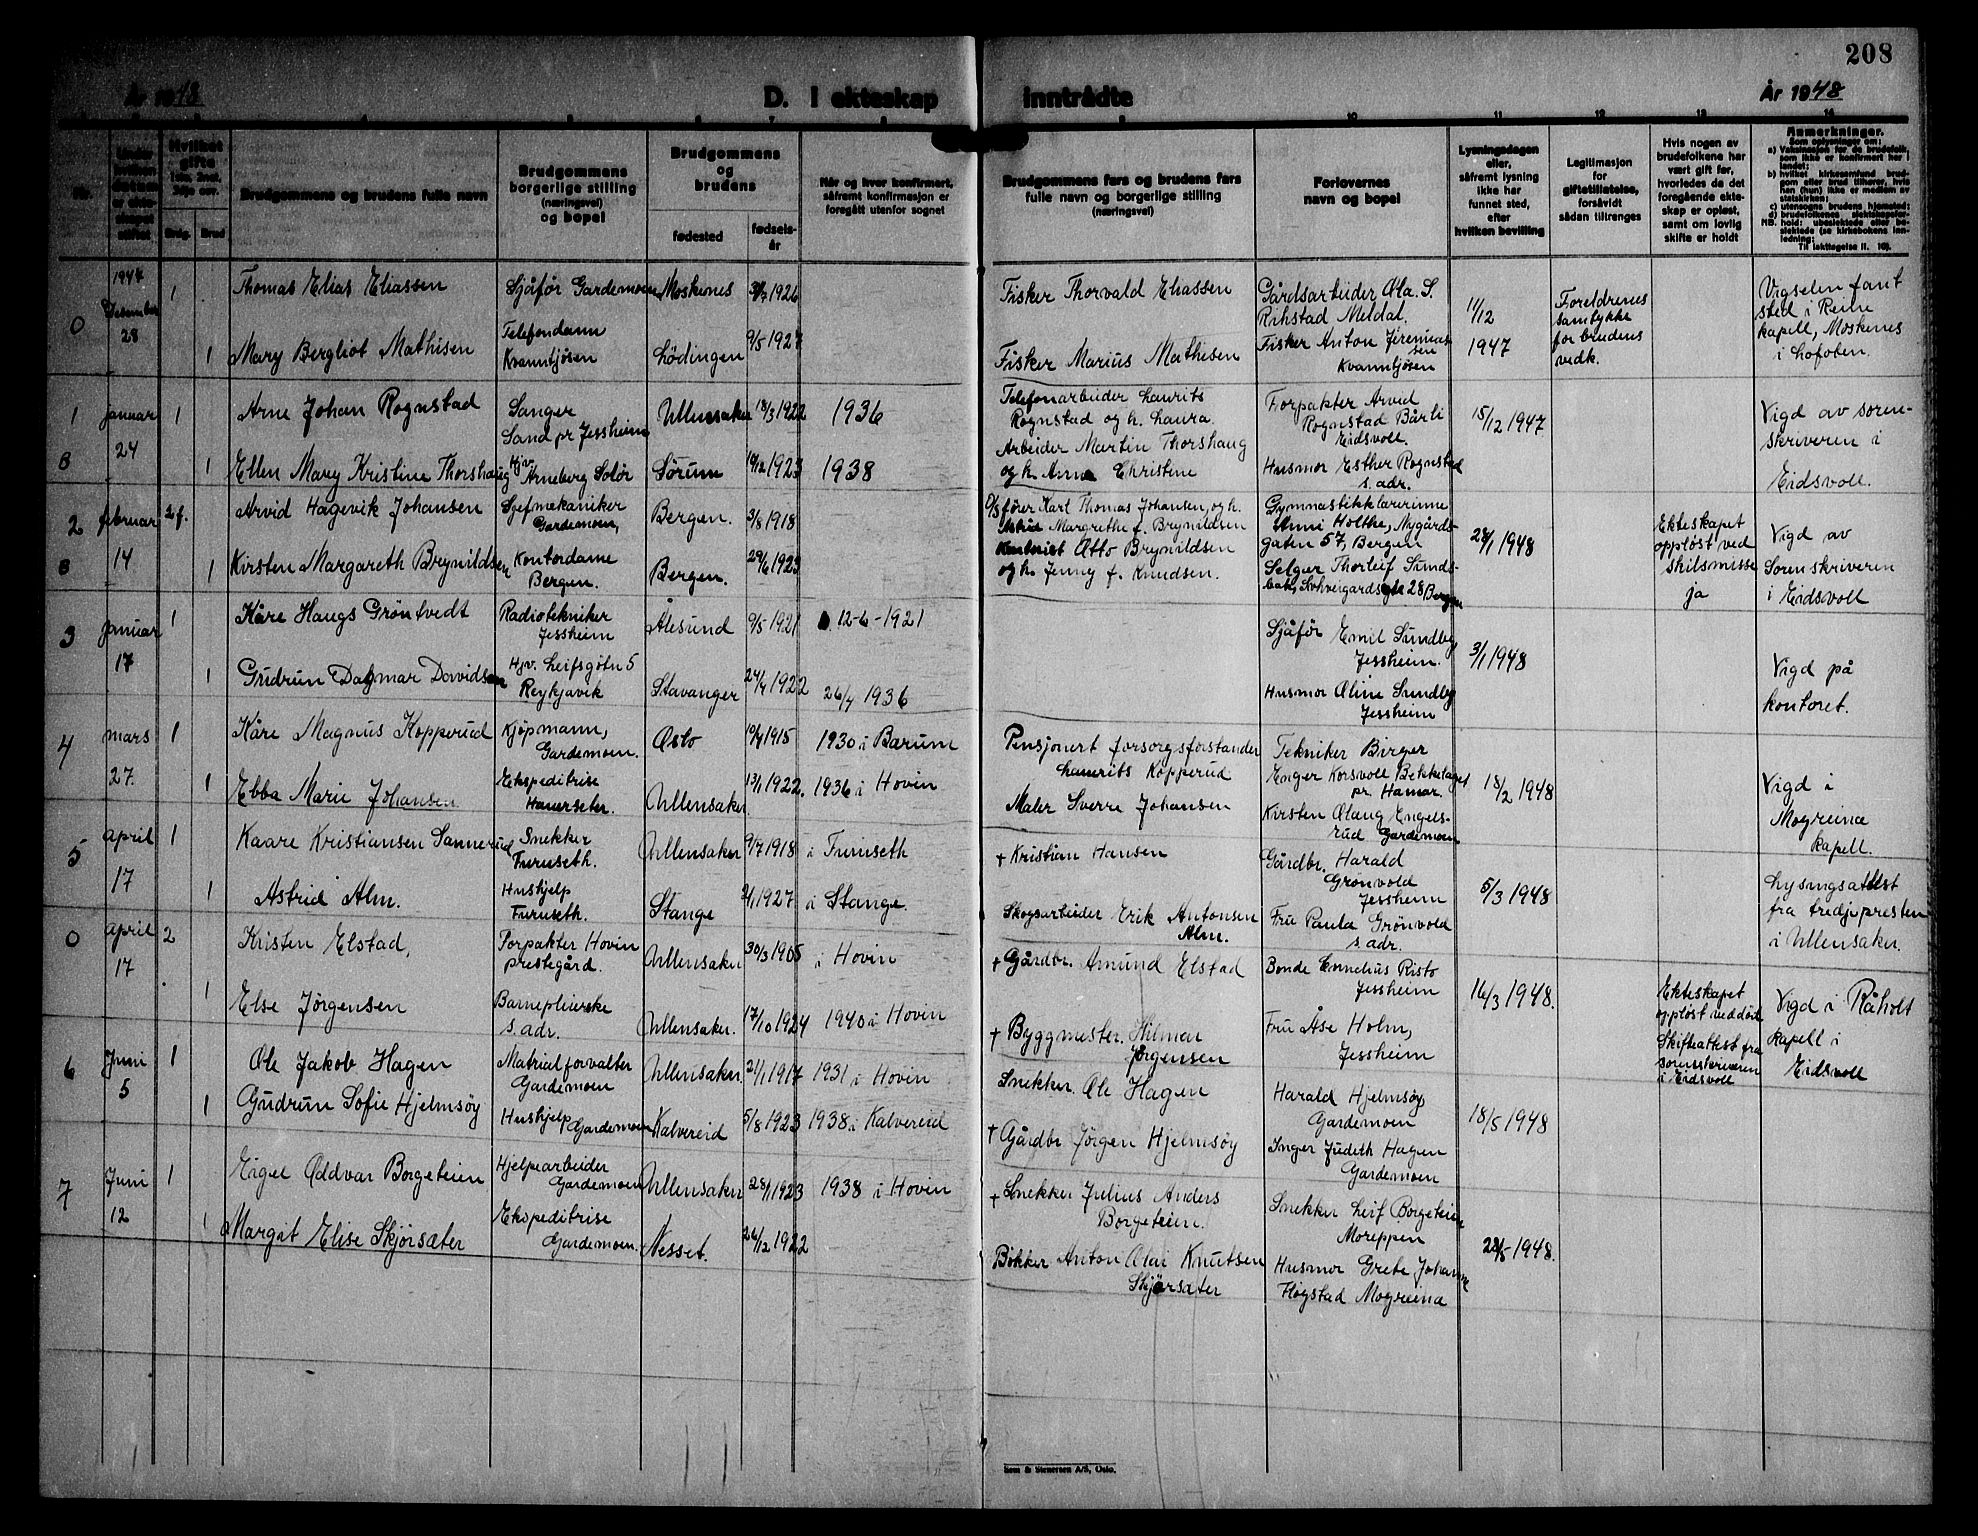 208
År 1948
D. I ekteskap inntrådte
År 1948
Nr.
Hvilket gifte 1ste, 2net, 3dje osv.
Brudg.
Brud
Brudgommens og brudens fulle navn
Brudgommens borgerlige stilling (næringsvei) og bopel
Brudgommens og brudens
fødested
fødselsår
Når og hvor konfirmert, såfremt konfirmasjon er foregått utenfor sognet
Brudgommens fars og brudens fars fulle navn og borgerlige stilling (næringsvei)
Forlovernes navn og bopel
Lysningsdagen eller, såfremt lysning ikke har funnet sted, efter hvilken bevilling
Legitimasjon for giftetillatelse, forsåvidt sådan tiltrenges
Hvis nogen av brudefolkene har vært gift før, hvorledes da det foregående ekteskap er opløst, samt om lovlig skifte er holdt
Anmerkninger.
Som oplysninger om:
a) Vaksinasjon for de brudefolk, som ikke er konfirmert her i landet:
b) hvilket kirkesamfund brudgom eller brud tilhører, hvis han (hun) ikke er medlem av statskirken:
c) utensogns brudens hjemsted:
d) brudefolkenes slektskapsforhold: ubeslektede eller beslektede (se kirkebokens innledning:
0
1947 Desember 28
1
Thomas Elias Eliassen
Sjåfør Gardemoen
Moskenes
1926
Fisker Thorvald Eliassen
Gårdsarbeider Ola. S. Rikstad Meldal.
11/12 1947
Foreldrenes samtykke for brudens vedk.
Vigselen fant sted i Reine kapell, Moskenes i Lofoten.
1
Mary Bergliot Mathisen
Telefondame Kvanntjösen
Lödingen
9/5 1927
Fisker Marius Mathisen
Fisker Anton Jeremiassen Kvanntjösen
1
januar 24
1
Arne Johan Rognstad
Sanger Sand pr Jessheim
Ullensaker
18/3 1922
1936
Telefonarbeider Laurits Rognstad og h. Laura
Forpakter Arvid Rognstad Bårli Eidsvoll.
15/12 1947
Vigd av sorenskriveren i Eidsvoll.
B
1
Ellen Mary Kristine Thorshaug
Hjv. Arneberg Solør
Sørum
1923
1938
Arbeider Martin Thorshaug og h. Anna Christine
Husmor Esther Rognstad s. adr.
2
februar 14
2 f.
Arvid Hagevik Johansen
Sjefmekaniker Gardemoen,
Bergen.
3/8 1918
fører Karl Thomas Johansen, og h. Margrethe f. Brynildsen
Gymnastikklærerinne Anni Holthe, Nygårdsgaten 57, Bergen
28/1 1948
Ekteskapet oppløst ved skilsmisse ja
Vigd av Sorenskriveren i Eidsvoll
B
1
Kirsten Margareth Brynildsen
Kontordame Bergen.
Bergen.
29/6 1923
Otto Brynildsen og h. Jenny f. Knudsen.
Selger Thorleif Sundsbak, 28 Bergen
3
januar 17
1
Kåre Haugs Gröntvedt
Radiotekniker Jessheim
Ålesund
9/5 1921
12-6-1921
Sjåför Emil Sundby Jessheim.
3/1 1948
Vigd på kontoret.
1
Gudrun Dagmar Davidsen
Hjv. Leifsgötn 5 Reykjavik
Stavanger
1922
26/4 1936
Husmor Oline Sundby Jessheim
4
mars 27.
1
Kåre Magnus Kopperud
Kjøpmann, Gardemoen.
Oslo
1915
1930 i Bærum
Pensjonert forsorgsforstander Laurits Kopperud
Tekniker Birger Enger Korsvoll Bekkelaget pr. Hamar.
18/2 1948
Vigd i Mogreina kapell.
1
Ebba Marie Johansen
Ekspeditrise Hauerseter.
Ullensaker.
13/1 1922.
1936 i Hovin
Maler Sverre Johansen
Kirsten Olaug Engelsrud Gardemoen
5
april 17
1
Kaare Kristiansen Sannerud
Snekker Furuseth.
Ullensaker
9/7 1918
i Furuseth
+ Kristian Hansen
Gårdbr. Harald Grønvold Jessheim
5/3 1948
Lysingsattest fra tredjepresten i Ullensaker.
1
Astrid Alm.
Hushjelp Furuseth.
Stange
2/1 1927
i Stange.
Skogsarbeider Erik Antonsen Alm.
Fru Paula Grønvold s. adr.
0
april 17
2
Kristen Elstad,
Forpakter Hovin prestegård.
Ullensaker
30/3 1905
i Hovin
+ Gårdbr. Amund Elstad
Bonde Cornelius Risto Jessheim
16/3 1948.
Ekteskapet oppløst ved död Skifteattest fra sorenskriveren i Eidsvoll
Vigd i Råholt kapell i Eidsvoll
1
Else Jörgensen
Barnepleierske s. adr.
Ullensaker.
17/10 1924
1940 i Hovin
+ Byggmester. Hilmar Jørgensen
Fru Åse Holm, Jessheim
6
Juni 5
1
Ole Jakob Hagen
Matrielforvalter Gardemoen
Ullensaker.
21/1 1917
1931 i Hovin
Snekker. Ole Hagen
Harald Hjelmsøy Gardemoen
18/5 1948
1
Gudrun Sofie Hjelmsøy
Hushjelp Gardemoen
Kalvereid
5/8 1923
1938 i Kalvereid
+ Gårdbr Jörgen Hjelmsöy
Inger Judith Hagen Gardemoen
7
Juni 12
1
Eigel Oddvar Borgeteien
Hjelpearbeider Gardemoen
Ullensaker
28/1 1923
1938 i Hovin
+ Snekker Julius Anders Borgeteien.
Snekker Leif Borgeteien Moreppen
28/5-1948.
1
Margit Elise Skjørsæter
Ekspeditrise Gardemoen.
Nesset.
26/12 1922
Bökker Anton Olai Knutsen Skjørsæter
Husmor Grete Johanne Flogstad Mogreina
Sem & Stenersen A/S, Oslo.